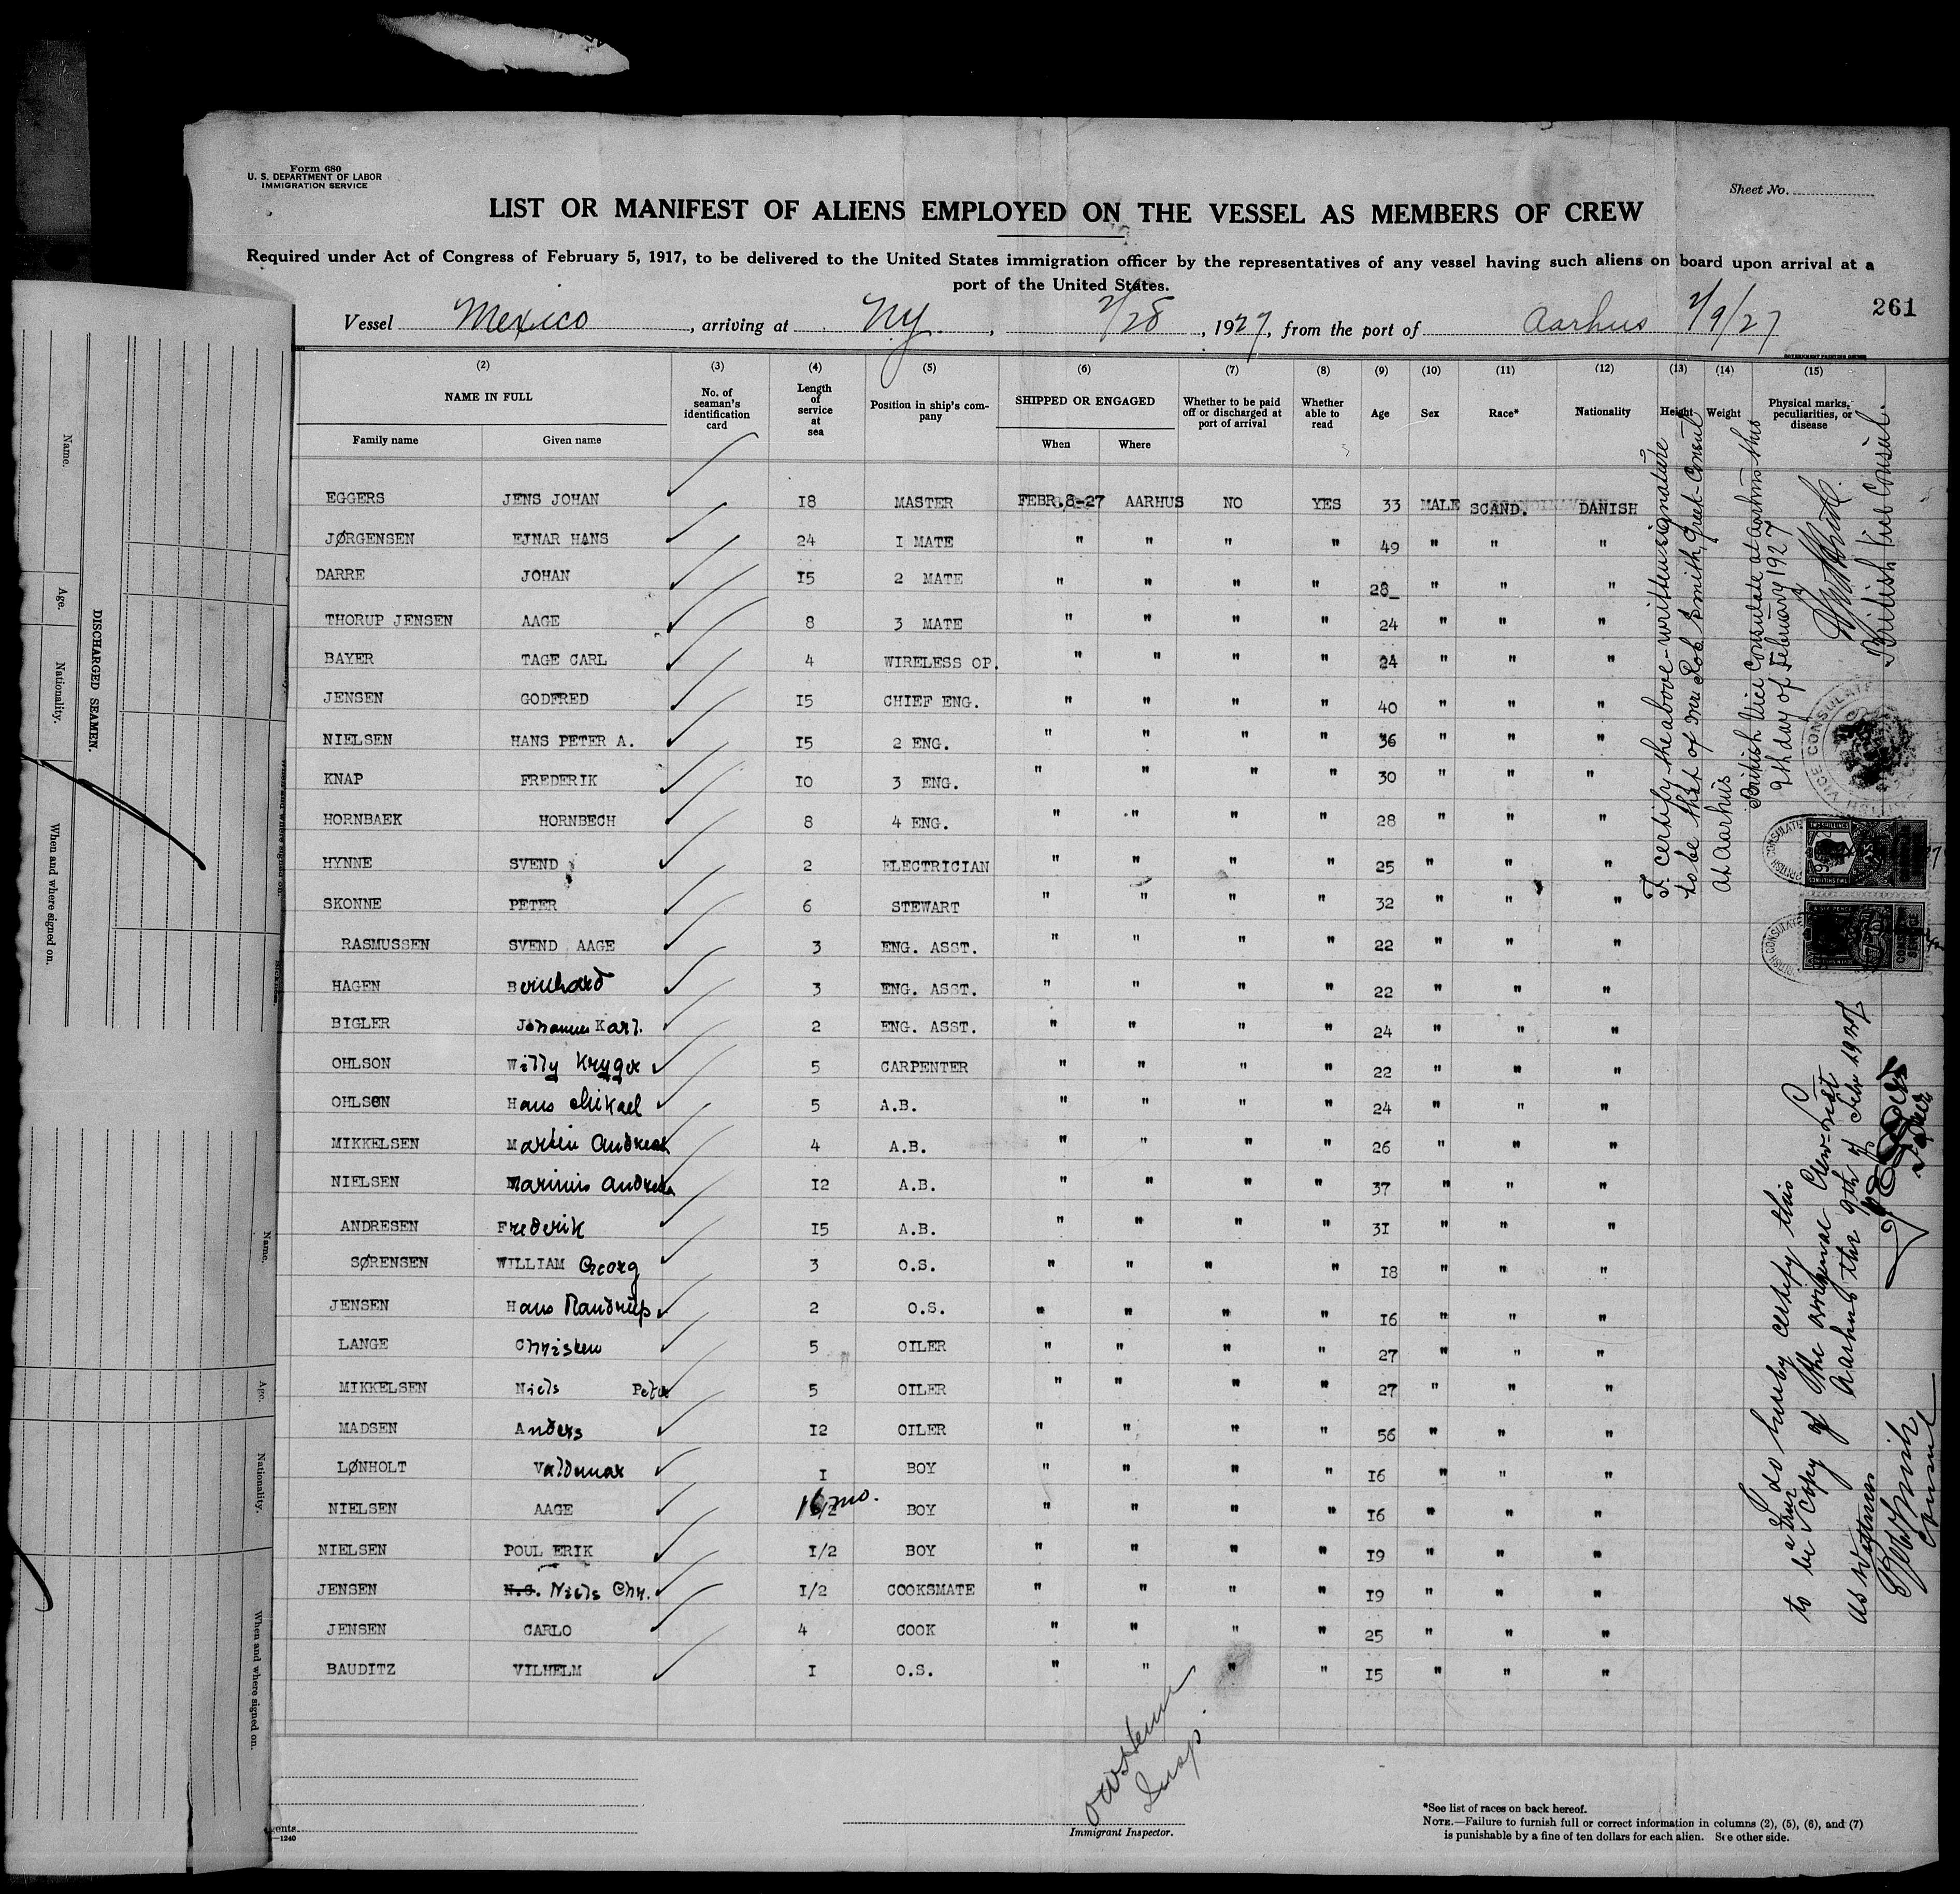 Form 680
U. S. DEPARTMENT OF LABOR
IMMIGRATION SERVICE
Sheet No.
LIST OR MANIFEST OF ALIENS EMPLOYED ON THE VESSEL AS MEMBERS OF CREW
Required under Act of Congress of February 5, 1917, to be delivered to the United States immigration officer by the representatives of any vessel having such aliens on board upon arrival at a
port of the United States.
261
Vessel Mexico, arriving at Ny., 2/28, 1927, from the port of Aarhus 2/9/27
(2) (3) (4) (5) (6) (7) (8) (9) (10) (11) (12) (13) (14) (15)
NAME IN FULL No. of seaman's identification card Length of service at sea Position in ship's company SHIPPED OR ENGAGED Whether to be paid off or discharged at port of arrival Whether able to read Age Sex Race* Nationality Height Weight Physical marks, peculiarities, or disease
Family name Given name When Where
EGGERS JENS JOHAN 18 MASTER FEBR.8-27 AARHUS NO YES 33 MALE SCAND. DANISH
JØRGENSEN EJNAR HANS 24 I MATE " " " " 49 " " "
DARRE JOHAN 15 2 MATE " " " " 28 " " "
THORUP JENSEN AAGE 8 3 MATE " " " " 24 " " "
BAYER TAGE CARL 4 WIRELESS OP. " " " " 24 " " "
JENSEN GODFRED 15 CHIEF ENG. " " " " 40 " " "
NIELSEN HANS PETER A. 15 2 ENG. " " " " 36 " " "
KNAP FREDERIK 10 3 ENG. " " " " 30 " " "
HORNBAEK HORNBECH 8 4 ENG. " " " " 28 " " "
HYNNE SVEND 2 ELECTRICIAN " " " " 25 " " "
SKONNE PETER 6 STEWART " " " " 32 " " "
RASMUSSEN SVEND AAGE 3 ENG. ASST. " " " " 22 " " "
HAGEN Bernhard 3 ENG. ASST. " " " " 22 " " "
BIGLER Johannes Karl. 2 ENG. ASST. " " " " 24 " " "
OHLSON Willy Kryger 5 CARPENTER " " " " 22 " " "
OHLSEN Hans Mikael 5 A.B. " " " " 24 " " "
MIKKELSEN Martin Andreas 4 A.B. " " " " 26 " " "
NIELSEN Marinus Andreas 12 A.B. " " " " 37 " " "
ANDRESEN Frederik 15 A.B. " " " " 31 " " "
SØRENSEN WILLIAM Georg 3 O.S. " " " " 18 " " "
JENSEN Hans Randrup 2 O.S. " " " " 16 " " "
LANGE Christen 5 OILER " " " " 27 " " "
MIKKELSEN Niels Peter 5 OILER " " " " 27 " " "
MADSEN Anders 12 OILER " " " " 56 " " "
LØNHOLT Valdemar I BOY " " " " 16 " " "
NIELSEN AAGE 16 mo. BOY " " " " 16 " " "
NIELSEN POUL ERIK 1/2 BOY " " " " 19 " " "
JENSEN N.C. Niels Chr. 1/2 COOKSMATE " " " " 19 " " "
JENSEN CARLO 4 COOK " " " " 25 " " "
BAUDITZ VILHELM I O.S. " " " " 15 " " "
I certify the above-written signature
to be that of mr. Rob. Smith, Greek-Consul
at Aarhus
British Vice Consulate at Aarhus this
9th day of February 1927
British Vice Consul.
BRITISH VICE CONSULATE
BRITISH CONSULATE
TWO SHILLINGS
CONSULAR SERVICE
I do hereby certify this
to be a true copy of the original Crew-List
Aarhus the 9th of Febr 1927
as Witness
Consul
Insp.
Immigrant Inspector.
*See list of races on back hereof.
NOTE.—Failure to furnish full or correct information in columns (2), (5), (6), and (7)
is punishable by a fine of ten dollars for each alien. See other side.
ents
—1240
DISCHARGED SEAMEN.
Name. Age. Nationality. When and where signed on.
Name. Age. Nationality. When and where signed on.